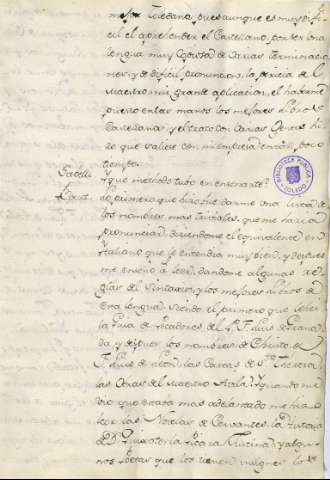 mejor Toledana, pues aunque es muy difi
cil el aprehender el Castellano, por ser una
lengua muy copiosa de varias terminacio
nes, y de dificil pronuncia, la pericia del
Maestro, mi grande aplicacion, el haverme
puesto en las manos los mejores Libros
Castellanos, y el trato con varias Gentes hi
zo que saliese con mi empresa en tan poco
tiempo.
y que metodo tubo en enseñarte?
Lo primero que hizo fue darme una lista de
los nombres mas triviales, que me hacia
pronunciar diciendome el equivalente en
Italiano que le entendia muy bien, y despues
me enseño a leer, dandome algunas re
glas del Sintaxis, y los mejores Libros de
esta lengua, siendo el primero que
la Guia de Pecadores del P. F. Luis de Grana
da y despues los nombres de Christo, de
F. Luis de Leon, las Cartas de Sta. Theresa
las Obras del Maestro Avila, y quando me
vio que estaba mas adelantado me
las Novelas de Cervantes, la Historia
de D. Quixote, la y algu
nos Poetas que los tienen insignes los
BIBLIOTECA PUBLICA
TOLEDO